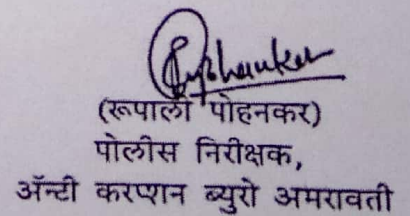 (रूपाली पोहनकर)
पोलीस निरीक्षक,
ॲन्टी करप्शन ब्युरो अमरावती